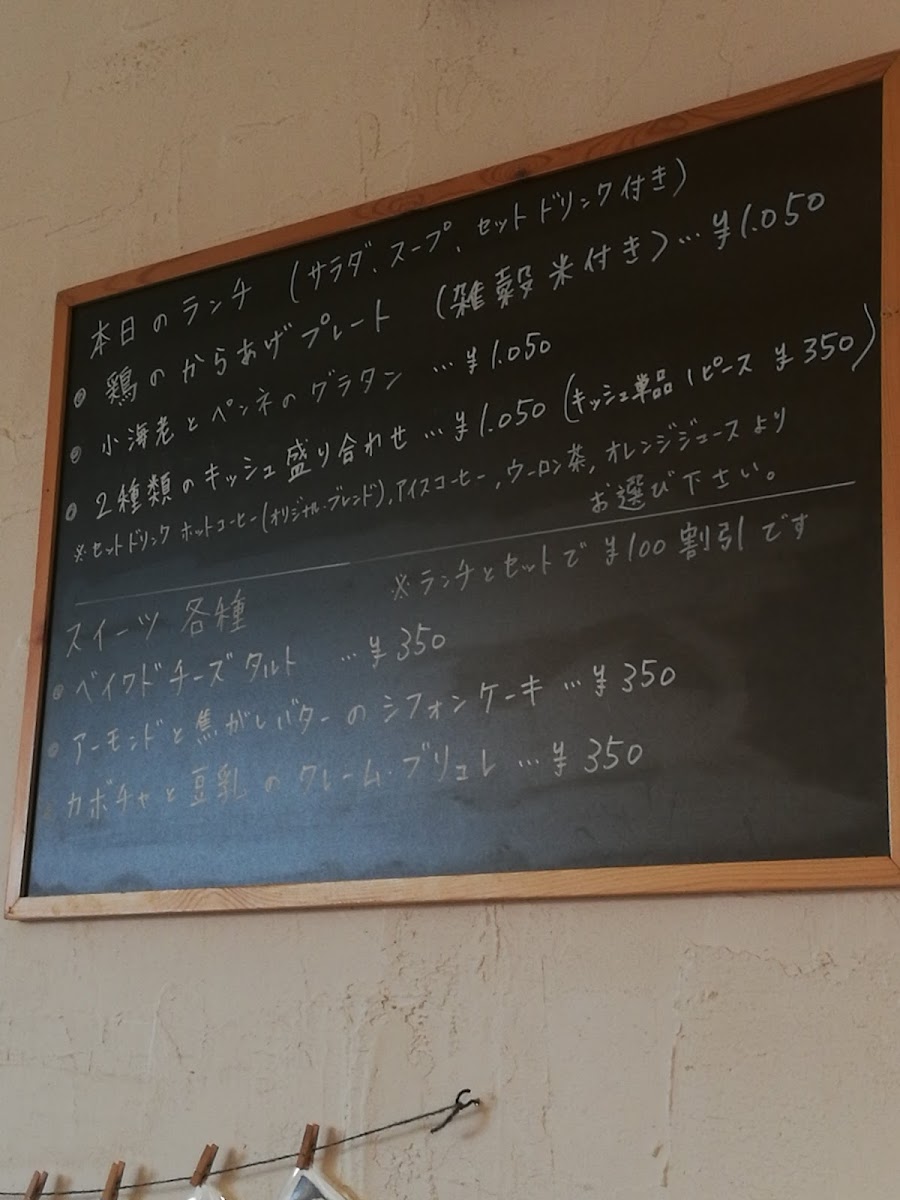 本日のランチ (サラダ、スープ、セットドリンク付き)
鶏のからあげプレート (雑穀米付き)…¥1.050
小海老とペンネのグラタン …¥1.050
2種類のキッシュ盛り合わせ…¥1.050 (キッシュ単品1ピース ¥350)
※セットドリンク ホットコーヒー(オリジナル・ブレンド),アイスコーヒー,ウーロン茶,オレンジジュースより
お選び下さい。
※ランチとセットで¥100割引です
スイーツ 各種
ベイクドチーズタルト …¥350
アーモンドと焦がしバターのシフォンケーキ…¥350
カボチャと豆乳のクレーム・ブリュレ…¥350